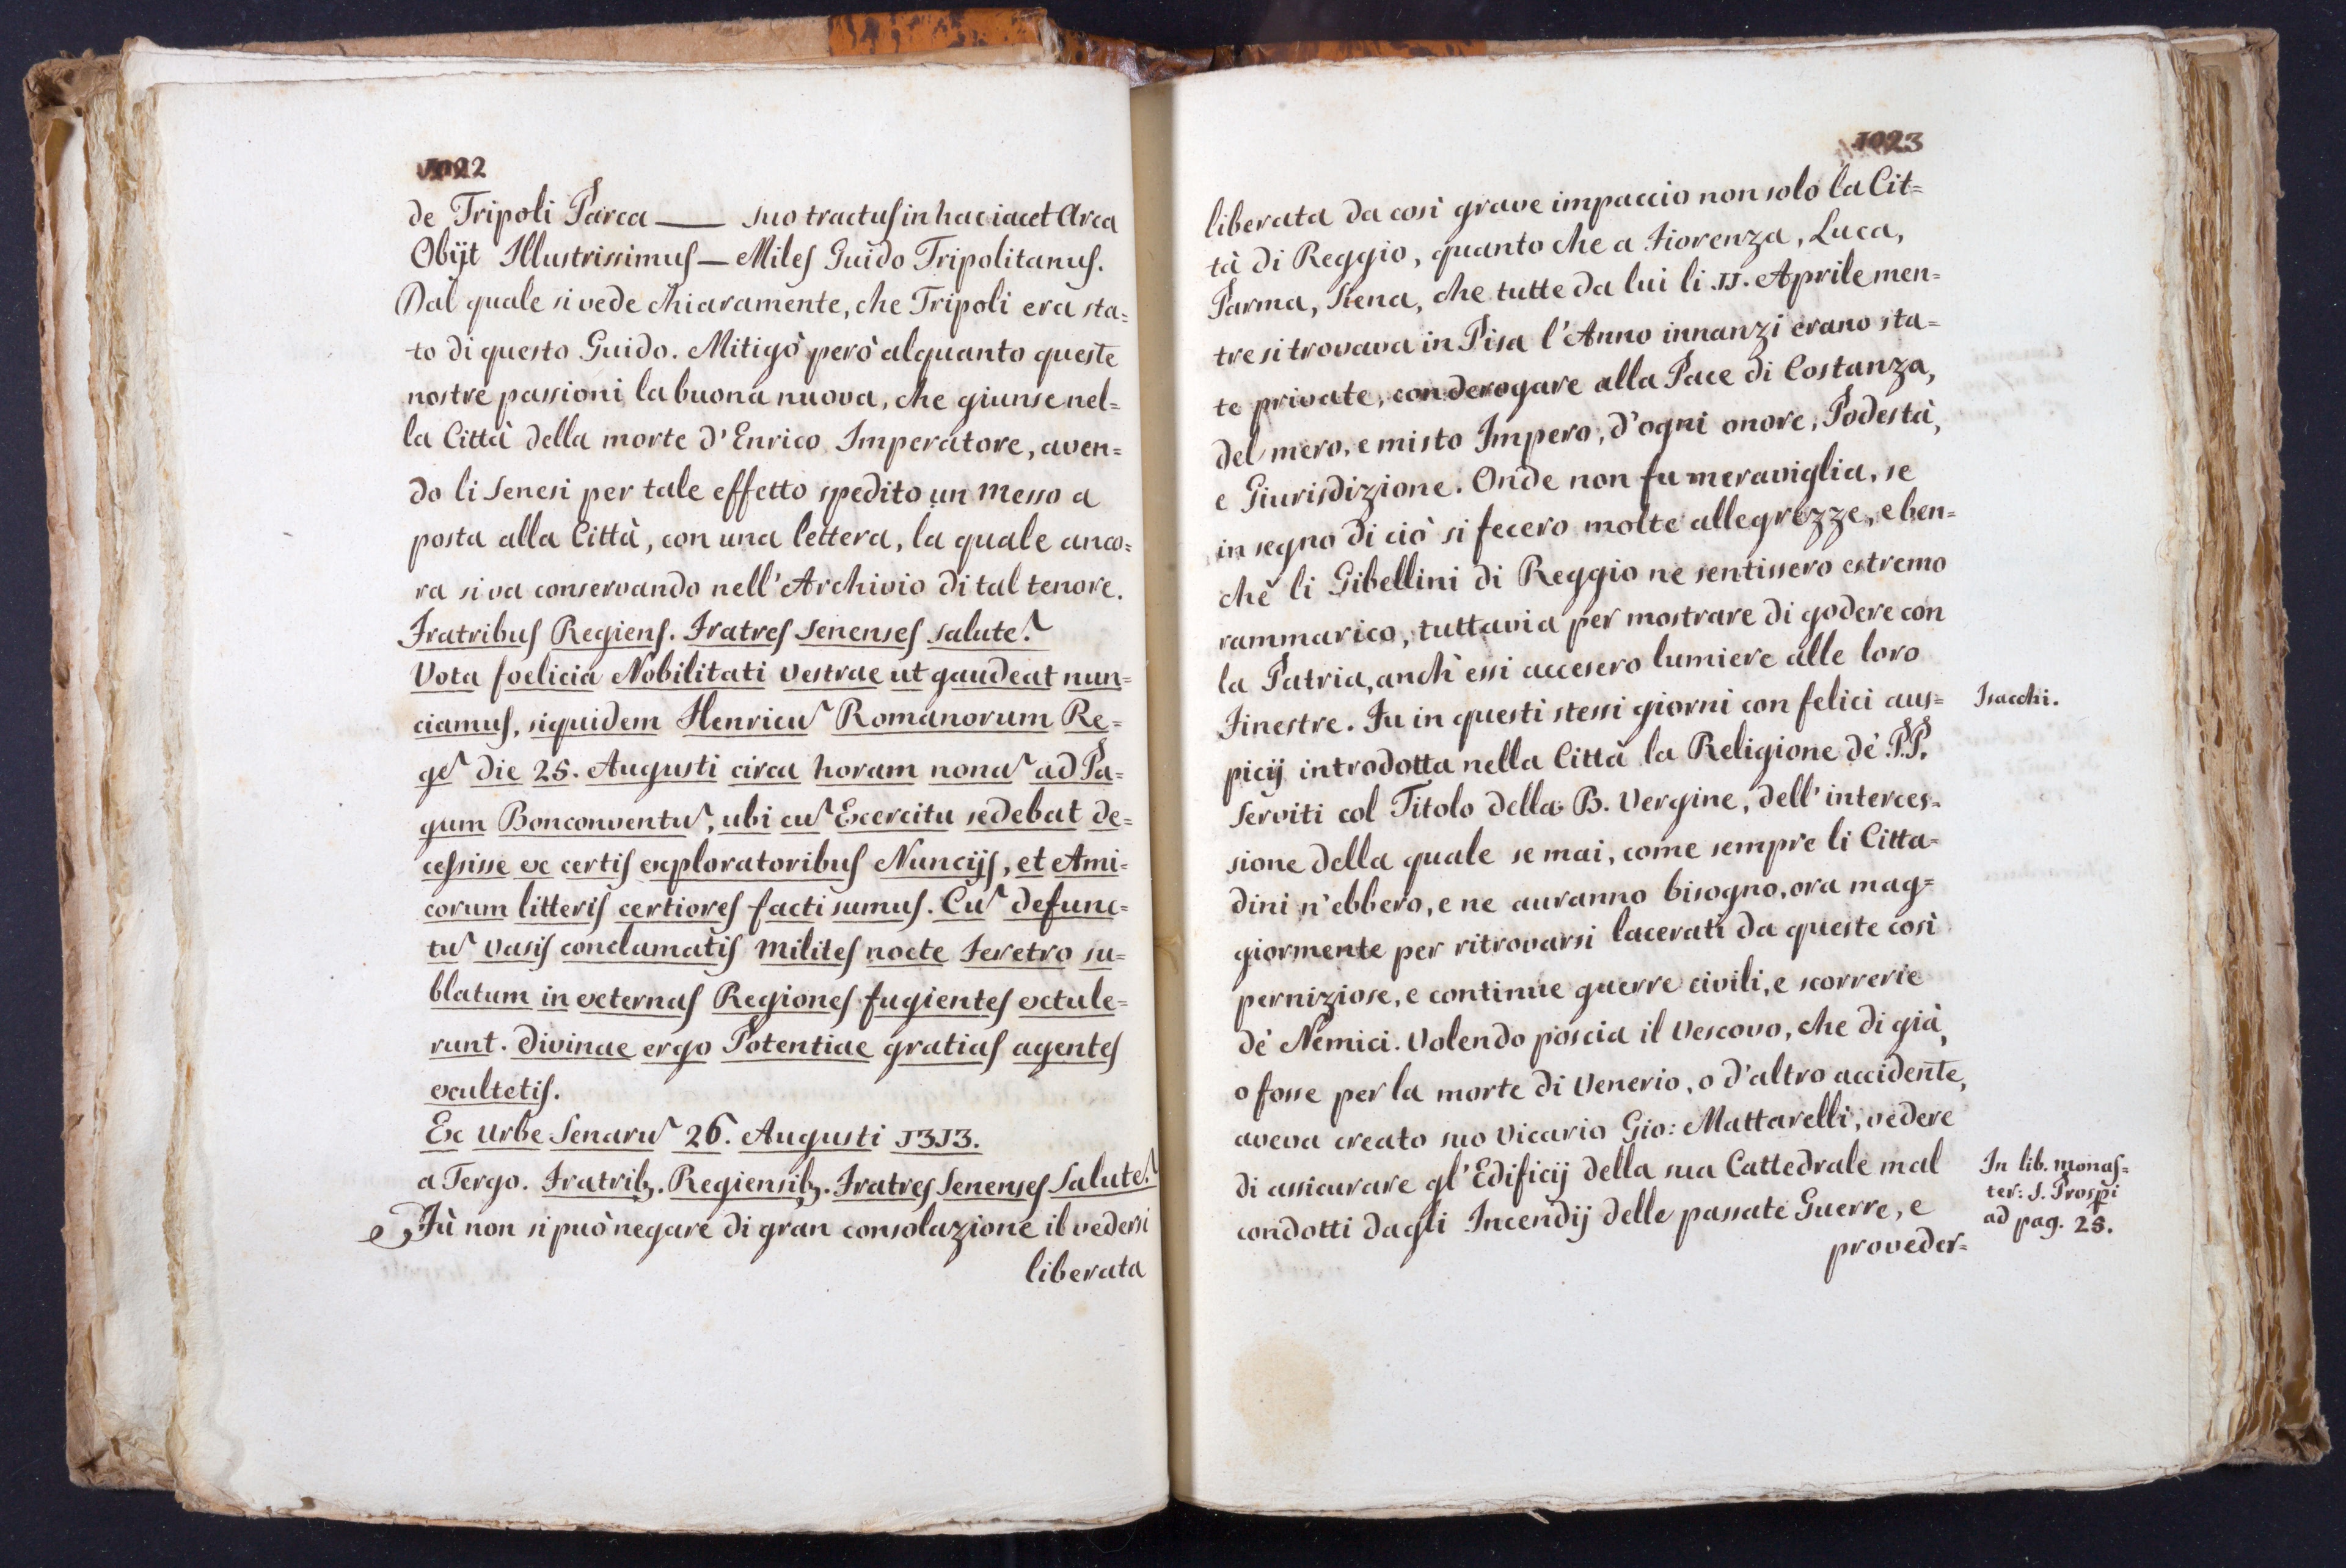 1022
de Tripoli Parca —— suo tractus in hac iacet Arca
Obijt Illustrissimus — Miles Guido Tripolitanus.
Dal quale si vede chiaramente, che Tripoli era sta=
to di questo Guido. Mitigò però alquanto queste
nostre passioni la buona nuova, che giunse nel=
la Città della morte d'Enrico Imperatore, aven=
do li Senesi per tale effetto spedito un Messo a
posta alla Città, con una lettera, la quale anco=
ra si va conservando nell'Archivio di tal tenore.
Fratribus Regiens. Fratres Senenses salute~.
Vota foelicia Nobilitati vestrae ut gaudeat nun=
ciamus, siquidem Henricu~ Romanorum Re=
ge~ die 25. Augusti circa horam nona~ ad Pa=
gum Bonconventu~, ubi cu~ Excercitu sedebat de=
cessisse ex certis exploratoribus Nuncijs, et Ami=
corum litteris certiores facti sumus. Cu~ defunc=
tu~ vasis conclamatis Milites nocte Feretro su=
blatum in externas Regiones fugientes extule=
runt. Divinae ergo Potentiae gratias agentes
exultetis.
Ex Urbe Senaru~ 26. Augusti 1313.
a Tergo. Fratrib3. Regiensib3. Fratres Senenses Salute~.
Fù non si può negare di gran consolazione il vedersi
liberata
1023
liberata da così grave impaccio non solo la Cit=
tà di Reggio, quanto che a Fiorenza, Luca,
Parma, Siena, che tutte da lui li 11. Aprile men=
tre si trovava in Pisa l'Anno innanzi erano sta=
te private, con derogare alla Pace di Costanza,
del mero, e misto Impero, d'ogni onore, Podestà,
e Giurisdizione. Onde non fu meraviglia, se
in segno di ciò si fecero molte allegrezze, e ben=
chè li Gibellini di Reggio ne sentissero estremo
rammarico, tuttavia per mostrare di godere con
la Patria, anch'essi accesero lumiere alle loro
Finestre. Fu in questi stessi giorni con felici aus=
Isacchi.
picij introdotta nella Città la Religione de' P.P.
Serviti col Titolo della B. Vergine, dell'interces=
sione della quale se mai, come sempre li Citta=
dini n'ebbero, e ne auranno bisogno, ora mag=
giormente per ritrovarsi lacerati da queste così
perniziose, e continue guerre civili, e scorrerie
de' Nemici. Volendo poscia il Vescovo, che di già,
o fosse per la morte di Venerio, o d'altro accidente,
aveva creato suo Vicario Gio: Mattarelli, vedere
di assicurare gl'Edificij della sua Cattedrale mal
condotti dagli Incendij delle passate Guerre, e
proveder=
In lib. monas=
ter: S. Prosp̄i
ad pag. 25.